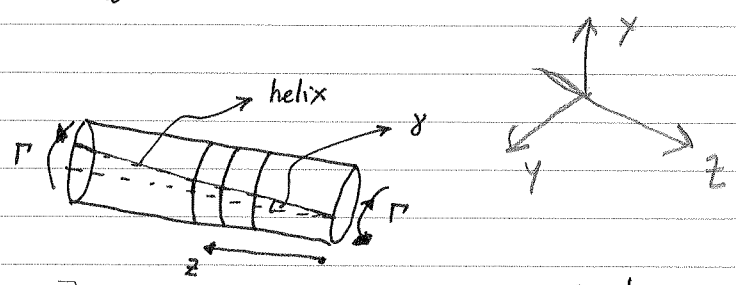 helix
γ
Γ
Γ
z
Y
Y
Z